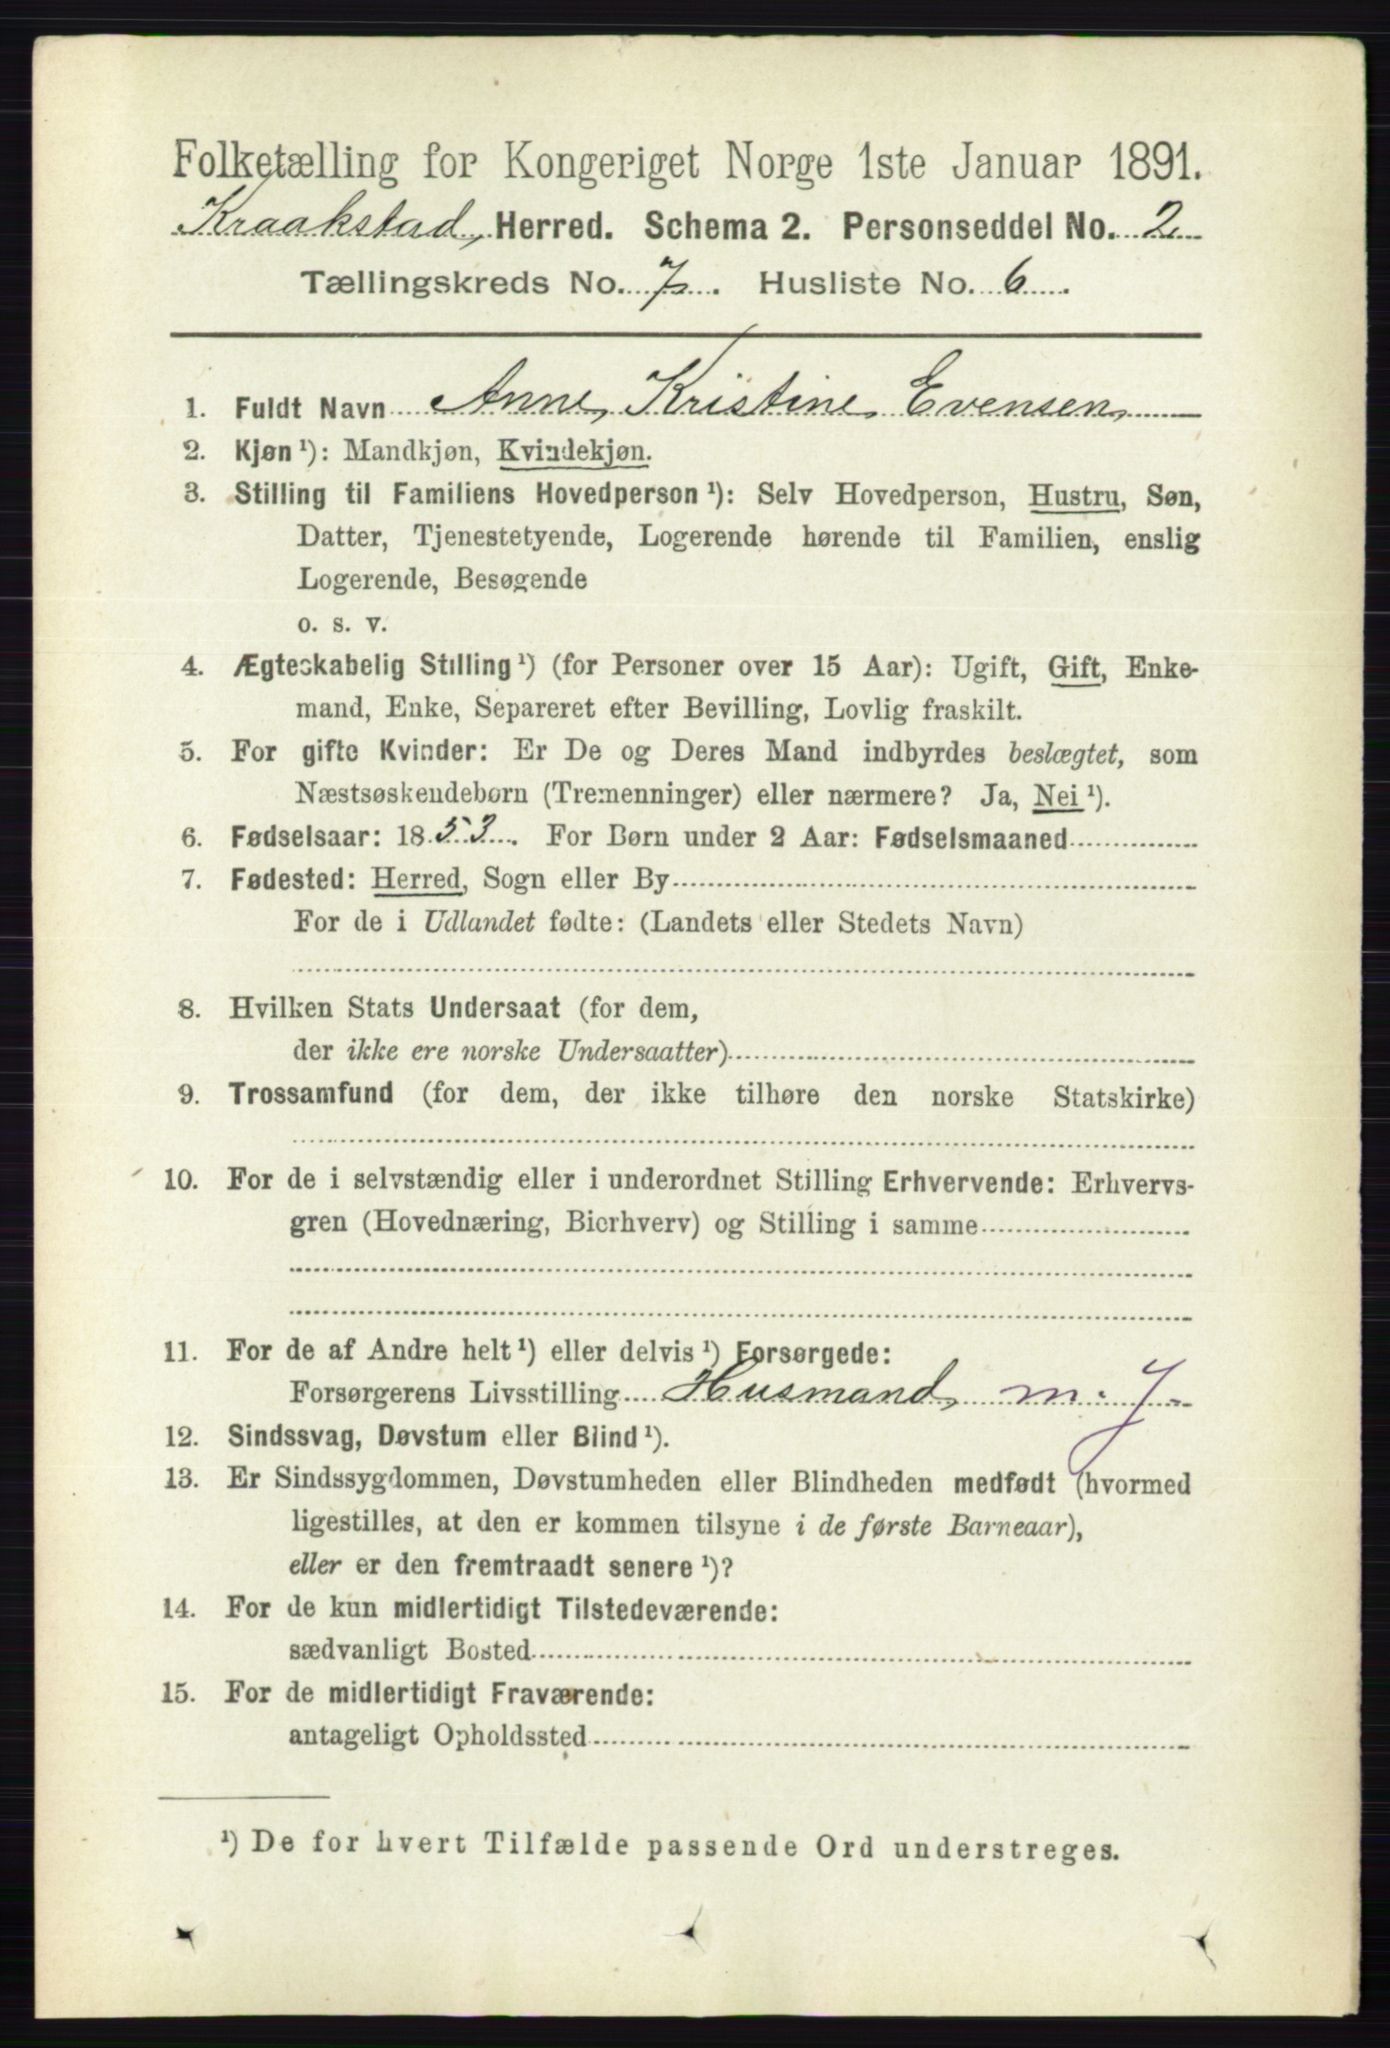 Folketælling for Kongeriget Norge 1ste Januar 1891.
Kraakstad Herred. Schema 2. Personseddel No. 2
Tællingskreds No. 7. Husliste No. 6.
1. Fuldt Navn Anne Kristine Evensen
2. Kjøn ¹): Mandkjøn, Kvindekjøn.
3. Stilling til Familiens Hovedperson ¹): Selv Hovedperson, Hustru, Søn,
Datter, Tjenestetyende, Logerende hørende til Familien, enslig
Logerende, Besøgende
o. s. v.
4. Ægteskabelig Stilling ¹) (for Personer over 15 Aar): Ugift, Gift, Enke-
mand, Enke, Separeret efter Bevilling, Lovlig fraskilt.
5. For gifte Kvinder: Er De og Deres Mand indbyrdes beslægtet, som
Næstsøskendebørn (Tremenninger) eller nærmere? Ja, Nei ¹).
6. Fødselsaar: 1853. For Børn under 2 Aar: Fødselsmaaned
7. Fødested: Herred, Sogn eller By
For de i Udlandet fødte: (Landets eller Stedets Navn)
8. Hvilken Stats Undersaat (for dem,
der ikke ere norske Undersaatter)
9. Trossamfund (for dem, der ikke tilhøre den norske Statskirke)
10. For de i selvstændig eller i underordnet Stilling Erhvervende: Erhvervs-
gren (Hovednæring, Bierhverv) og Stilling i samme
11. For de af Andre helt ¹) eller delvis ¹) Forsørgede:
Forsørgerens Livsstilling Husmand m. J
12. Sindssvag, Døvstum eller Blind ¹).
13. Er Sindssygdommen, Døvstumheden eller Blindheden medfødt (hvormed
ligestilles, at den er kommen tilsyne i de første Barneaar),
eller er den fremtraadt senere ¹)?
14. For de kun midlertidigt Tilstedeværende:
sædvanligt Bosted
15. For de midlertidigt Fraværende:
antageligt Opholdssted
¹) De for hvert Tilfælde passende Ord understreges.